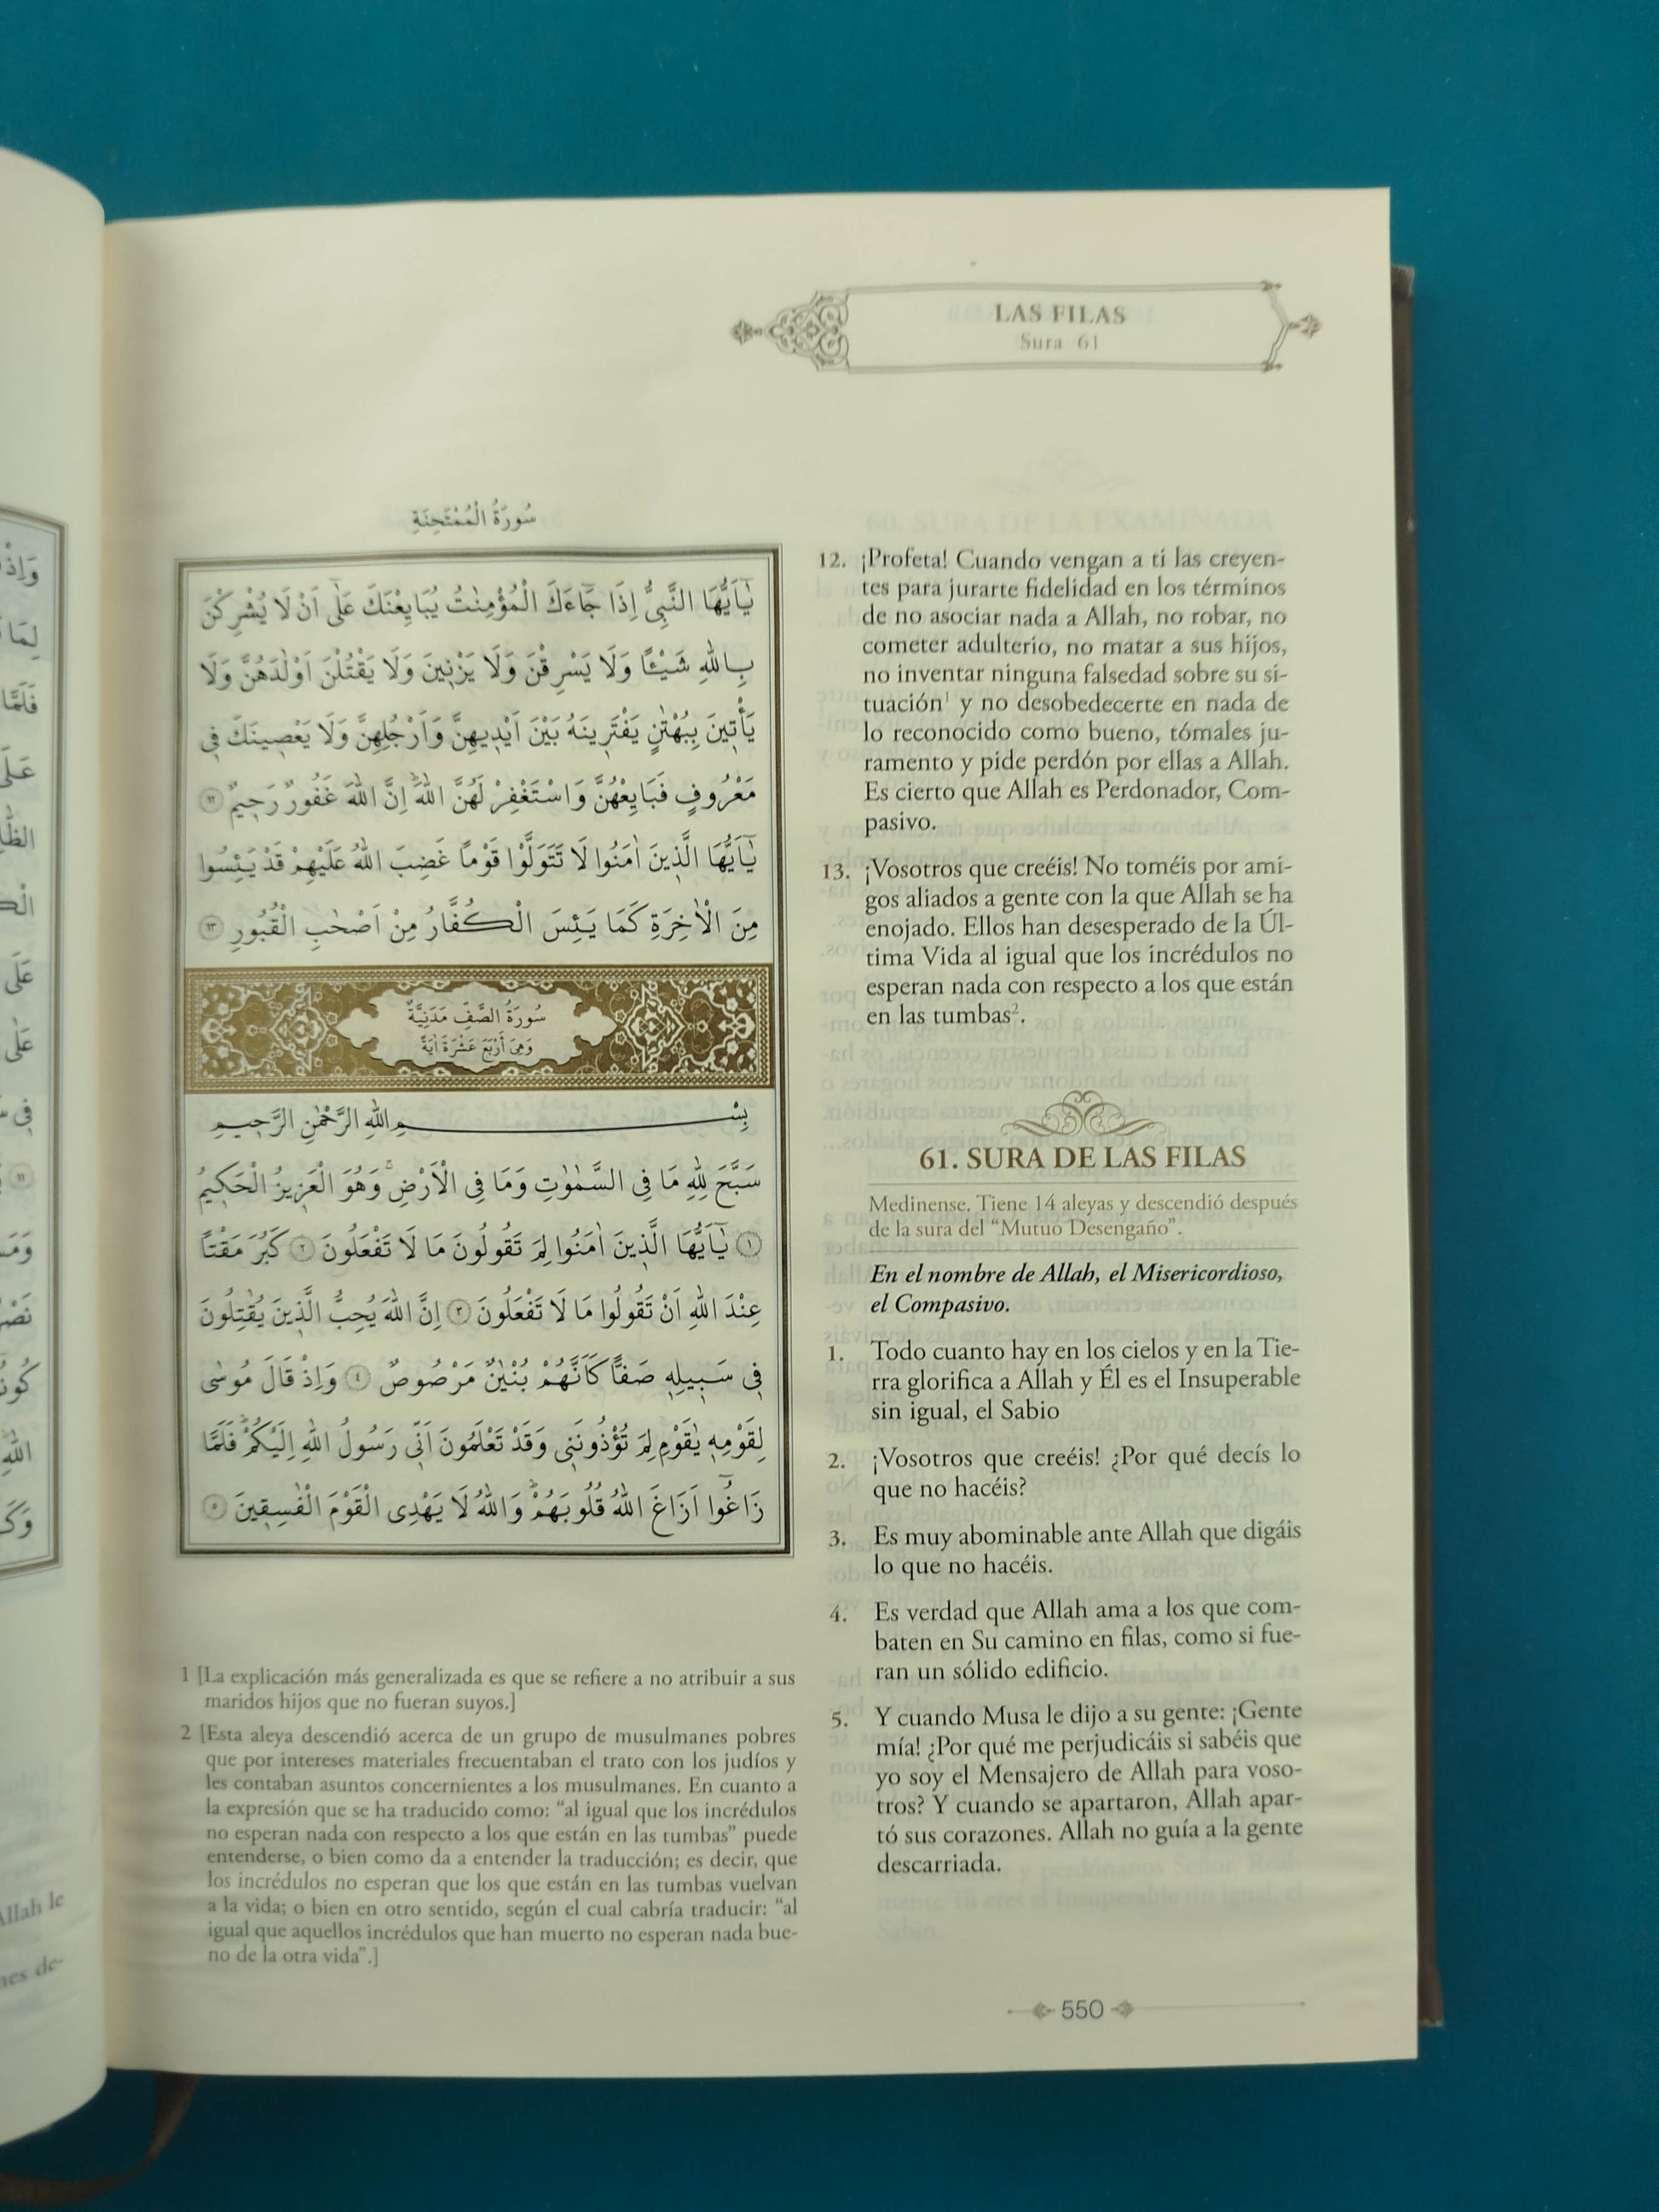 LAS FILAS
Sura 61
سُورَةُ الْمُمْتَحِنَةِ
يَٓا اَيُّهَا النَّبِيُّ اِذَا جَٓاءَكَ الْمُؤْمِنٰتُ يُبَايِعْنَكَ عَلٰٓى اَنْ لَا يُشْرِكْنَ
بِاللّٰهِ شَيْـًٔا وَلَا يَسْرِقْنَ وَلَا يَزْن۪ينَ وَلَا يَقْتُلْنَ اَوْلٰدَهُنَّ وَلَا
يَأْت۪ينَ بِبُهْتٰنٍ يَفْتَر۪ينَهُ بَيْنَ اَيْد۪يهِنَّ وَاَرْجُلِهِنَّ وَلَا يَعْص۪ينَكَ ف۪ي
مَعْرُوفٍ فَبَايِعْهُنَّ وَاسْتَغْفِرْ لَهُنَّ اللّٰهَۜ اِنَّ اللّٰهَ غَفُورٌ رَح۪يمٌ ١٢
يَٓا اَيُّهَا الَّذ۪ينَ اٰمَنُوا لَا تَتَوَلَّوْا قَوْماً غَضِبَ اللّٰهُ عَلَيْهِمْ قَدْ يَئِسُوا
مِنَ الْاٰخِرَةِ كَمَا يَئِسَ الْكُفَّارُ مِنْ اَصْحٰبِ الْقُبُورِ ١٣
سُورَةُ الصَّفِّ مَدَنِيَّةٌ
وَهِيَ أَرْبَعَ عَشْرَةَ اٰيَةً
بِسْمِ اللّٰهِ الرَّحْمٰنِ الرَّح۪يمِ
سَبَّحَ لِلّٰهِ مَا فِي السَّمٰوٰتِ وَمَا فِي الْاَرْضِۚ وَهُوَ الْعَز۪يزُ الْحَك۪يمُ
١ يَٓا اَيُّهَا الَّذ۪ينَ اٰمَنُوا لِمَ تَقُولُونَ مَا لَا تَفْعَلُونَ ٢ كَبُرَ مَقْتاً
عِنْدَ اللّٰهِ اَنْ تَقُولُوا مَا لَا تَفْعَلُونَ ٣ اِنَّ اللّٰهَ يُحِبُّ الَّذ۪ينَ يُقٰتِلُونَ
ف۪ي سَب۪يلِه۪ صَفاًّ كَاَنَّهُمْ بُنْيٰنٌ مَرْصُوصٌ ٤ وَاِذْ قَالَ مُوسٰى
لِقَوْمِه۪ يٰقَوْمِ لِمَ تُؤْذُونَن۪ي وَقَدْ تَعْلَمُونَ اَنّ۪ي رَسُولُ اللّٰهِ اِلَيْكُمْۜ فَلَمَّا
زَاغُٓوا اَزَاغَ اللّٰهُ قُلُوبَهُمْۜ وَاللّٰهُ لَا يَهْدِي الْقَوْمَ الْفٰسِق۪ينَ ٥
1 [La explicación más generalizada es que se refiere a no atribuir a sus
maridos hijos que no fueran suyos.]
2 [Esta aleya descendió acerca de un grupo de musulmanes pobres
que por intereses materiales frecuentaban el trato con los judíos y
les contaban asuntos concernientes a los musulmanes. En cuanto a
la expresión que se ha traducido como: “al igual que los incrédulos
no esperan nada con respecto a los que están en las tumbas” puede
entenderse, o bien como da a entender la traducción; es decir, que
los incrédulos no esperan que los que están en las tumbas vuelvan
a la vida; o bien en otro sentido, según el cual cabría traducir: “al
igual que aquellos incrédulos que han muerto no esperan nada bue-
no de la otra vida”.]
12. ¡Profeta! Cuando vengan a ti las creyen-
tes para jurarte fidelidad en los términos
de no asociar nada a Allah, no robar, no
cometer adulterio, no matar a sus hijos,
no inventar ninguna falsedad sobre su si-
tuación¹ y no desobedecerte en nada de
lo reconocido como bueno, tómales ju-
ramento y pide perdón por ellas a Allah.
Es cierto que Allah es Perdonador, Com-
pasivo.
13. ¡Vosotros que creéis! No toméis por ami-
gos aliados a gente con la que Allah se ha
enojado. Ellos han desesperado de la Úl-
tima Vida al igual que los incrédulos no
esperan nada con respecto a los que están
en las tumbas².
61. SURA DE LAS FILAS
Medinense. Tiene 14 aleyas y descendió después
de la sura del “Mutuo Desengaño”.
En el nombre de Allah, el Misericordioso,
el Compasivo.
1. Todo cuanto hay en los cielos y en la Tie-
rra glorifica a Allah y Él es el Insuperable
sin igual, el Sabio
2. ¡Vosotros que creéis! ¿Por qué decís lo
que no hacéis?
3. Es muy abominable ante Allah que digáis
lo que no hacéis.
4. Es verdad que Allah ama a los que com-
baten en Su camino en filas, como si fue-
ran un sólido edificio.
5. Y cuando Musa le dijo a su gente: ¡Gente
mía! ¿Por qué me perjudicáis si sabéis que
yo soy el Mensajero de Allah para voso-
tros? Y cuando se apartaron, Allah apar-
tó sus corazones. Allah no guía a la gente
descarriada.
550